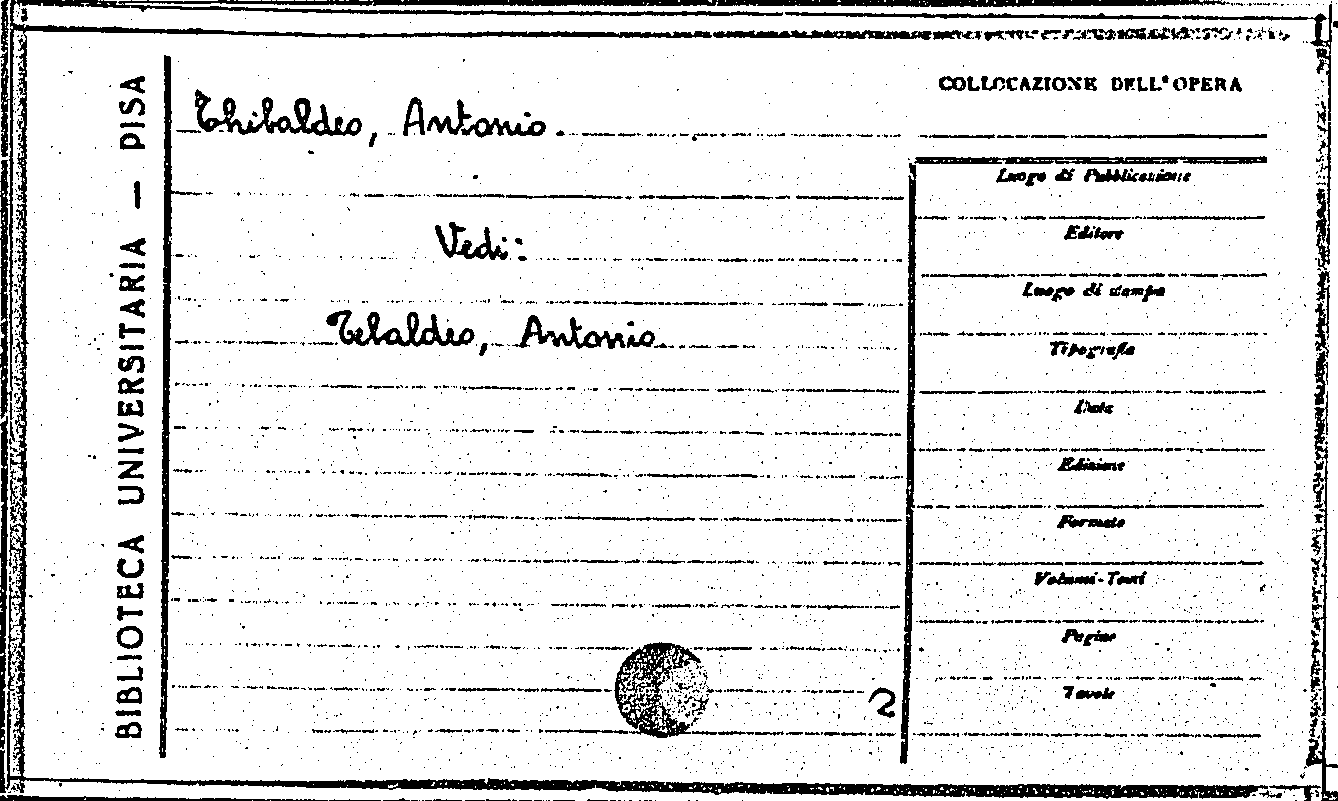 BIBLIOTECA UNIVERSITARIA — PISA
Thibaldeo, Antonio.
Vedi:
Tebaldeo, Antonio.
2
COLLOCAZIONE DELL'OPERA
Luogo di Pubblicazione
Editore
Luogo di stampa
Tipografia
Data
Edizione
Formato
Volumi-Tomi
Pagine
Tavole